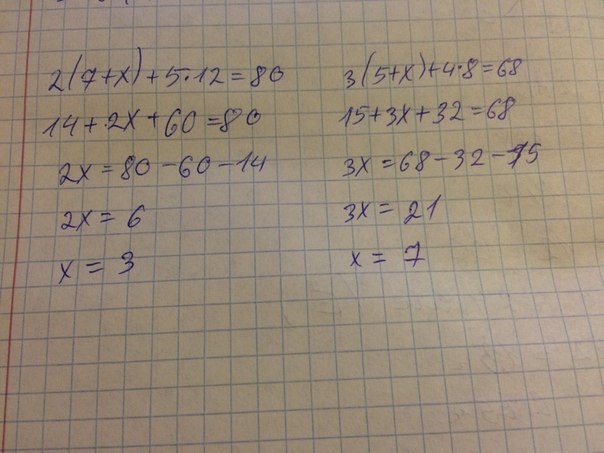 2(7+x)+5·12=80
14+2x+60=80
2x=80-60-14
2x=6
x=3
3(5+x)+4·8=68
15+3x+32=68
3x=68-32-15
3x=21
x=7